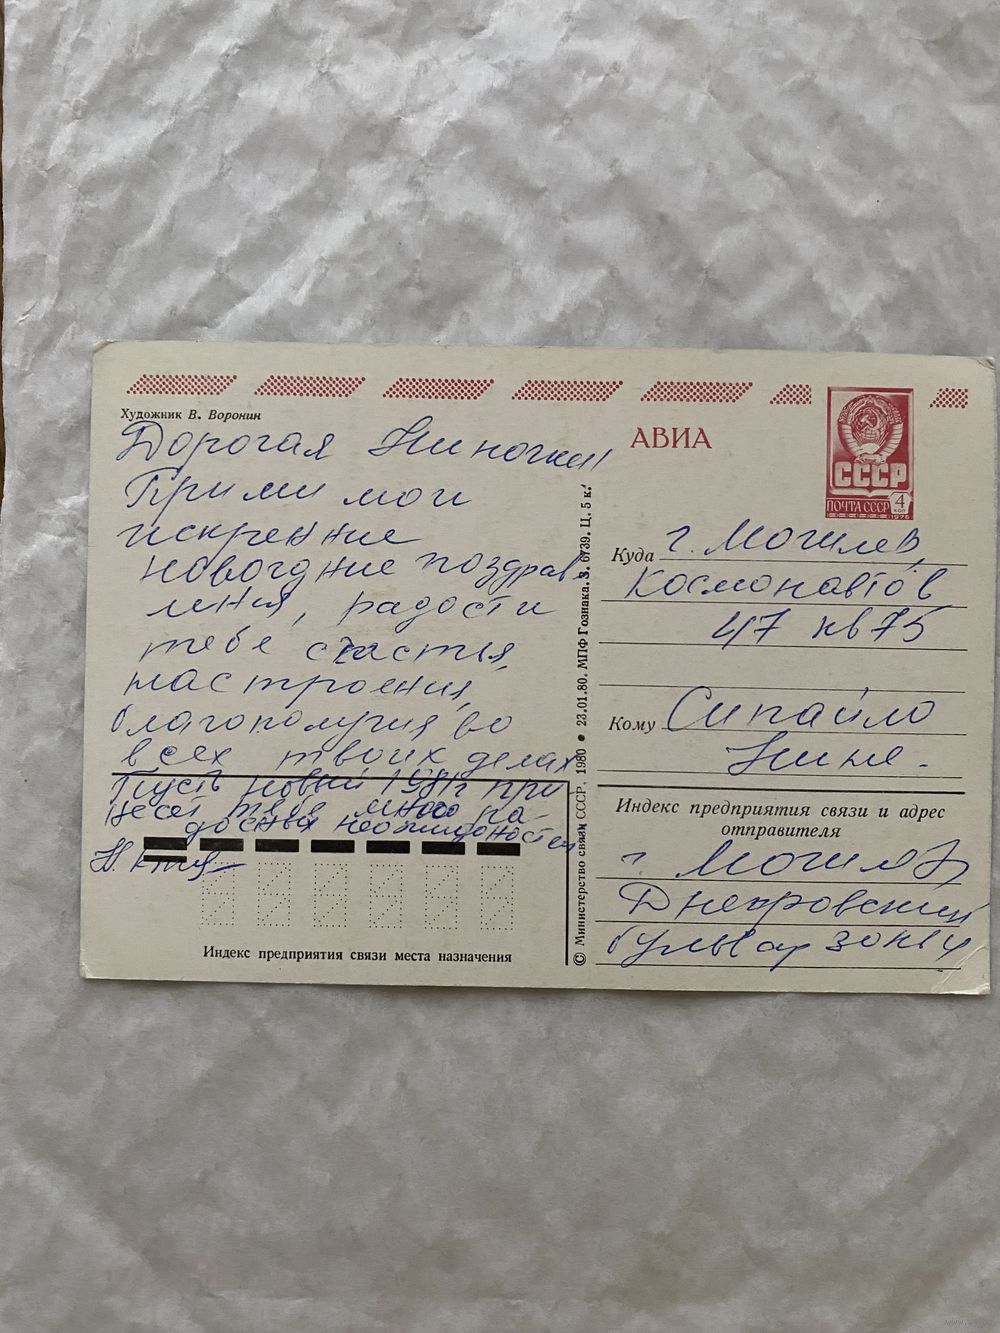 Художник В. Воронин
Дорогая Ниночка!
Прими мои
искренние
новогодние поздрав-
ления, радости
тебе счастья,
настроения,
благополучия, во
всех твоих делах
Пусть новый 1981г при
несет тебе много ра-
достных неожиданностей
Н.
Индекс предприятия связи места назначения
© Министерство связи СССР. 1980 • 23.01.80. МПФ Гознака. З. 6739. Ц. 5 к.
АВИА
СССР
ПОЧТА СССР
4
КОП
1976
Куда г. Могилев,
Космонавтов
47 кв 75
Кому Сипайло
Нине.
Индекс предприятия связи и адрес
отправителя
г. Могилев
Днепровский
бульвар